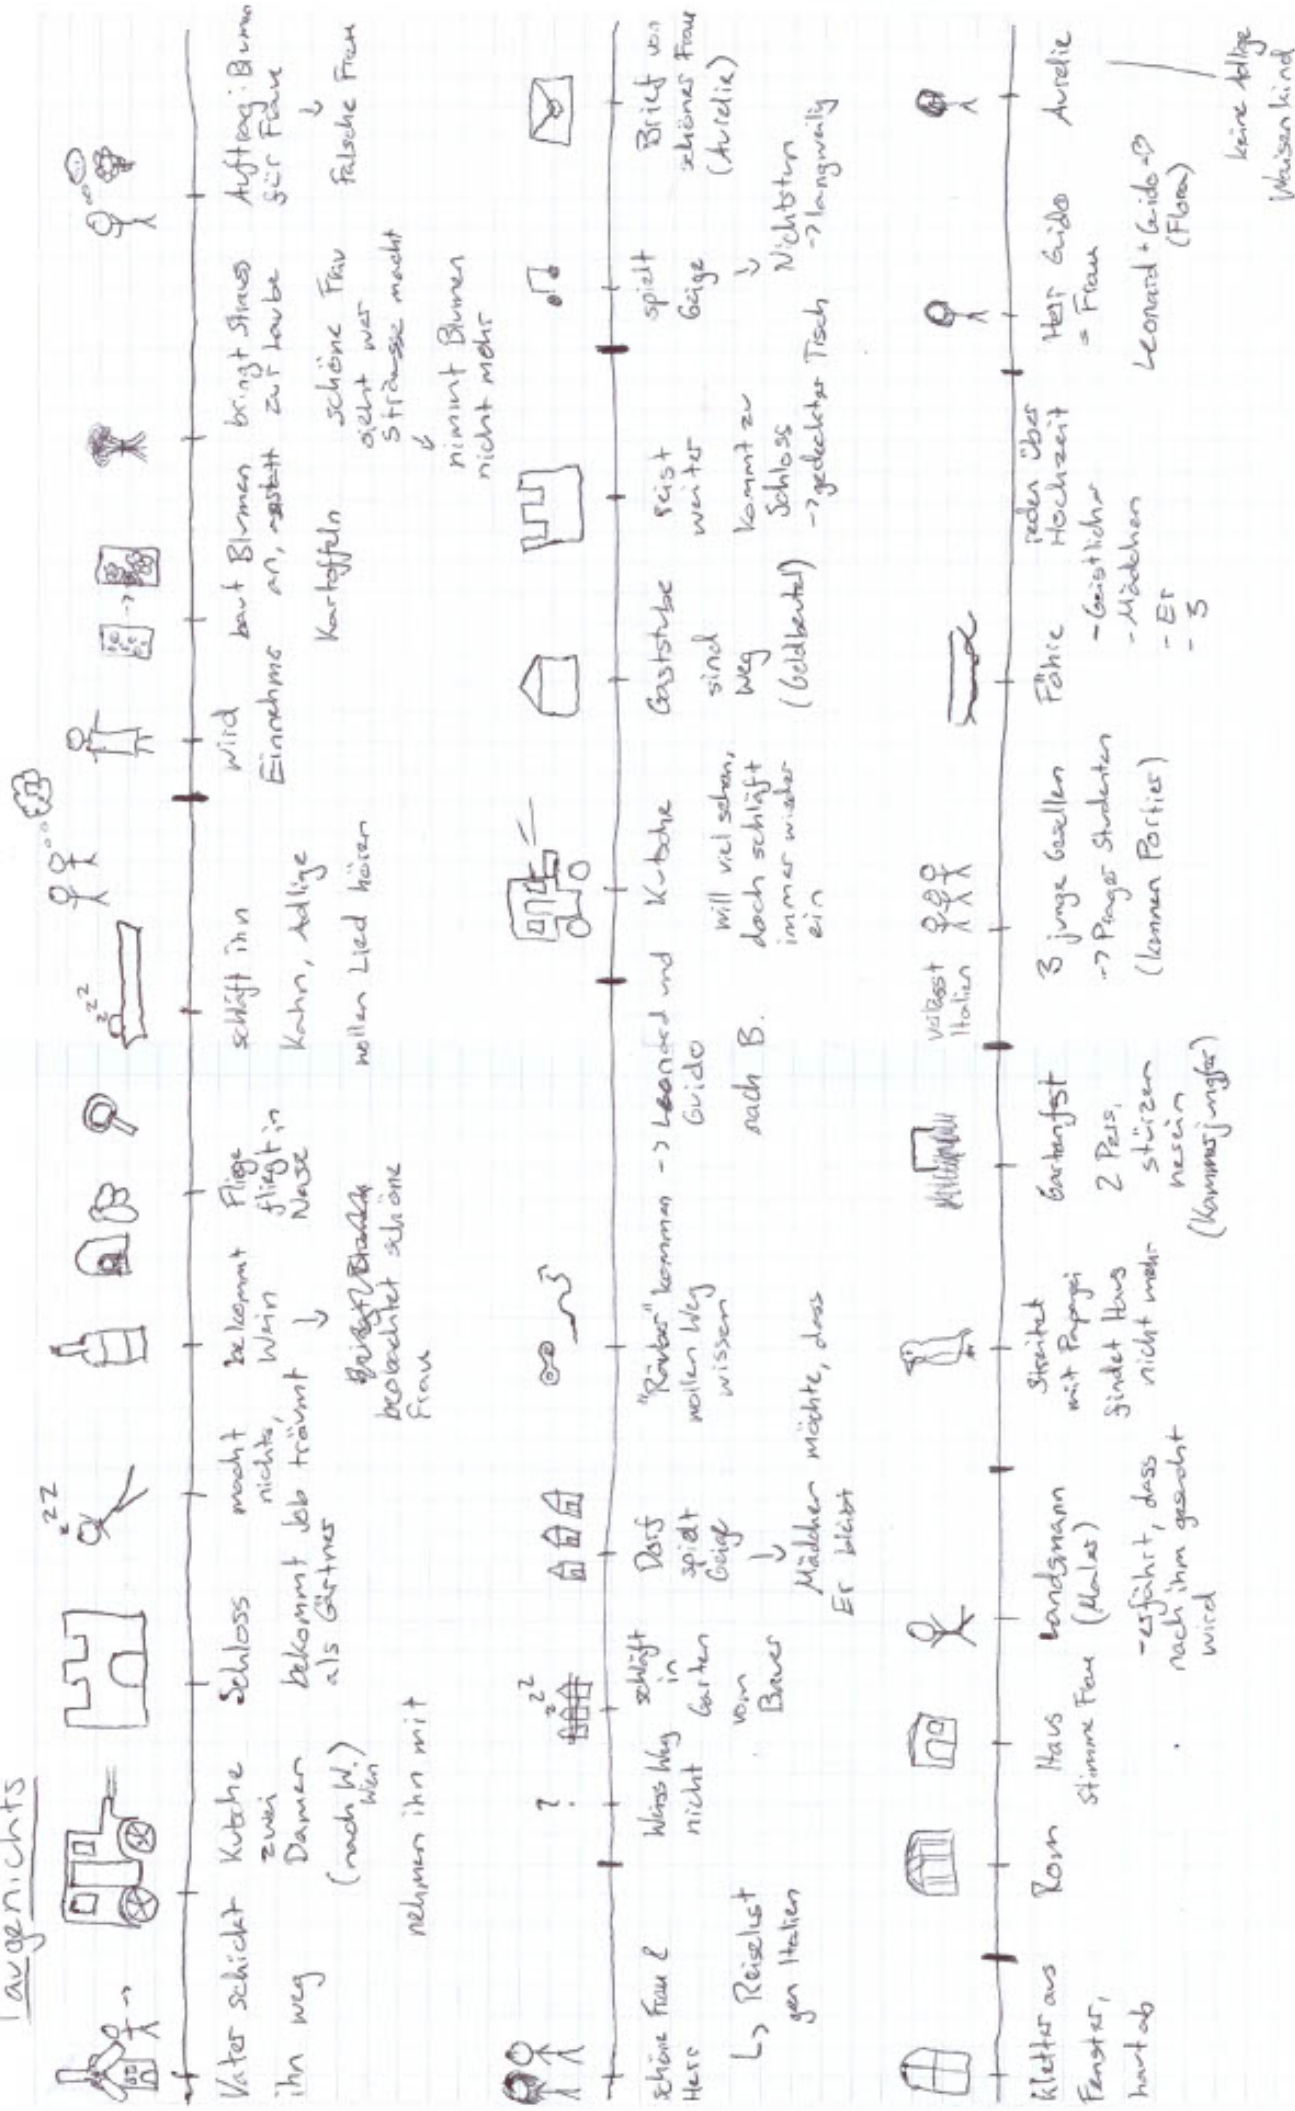 Taugenichts
Vater schickt
ihn weg
Kutsche
zwei
Damen
(nach W.)
Wien
nehmen ihn mit
Schloss
bekommt Job
als Gärtner
macht
nichts,
träumt
bekommt
Wein
↓
beobachtet schöne
Frau
Fliege
fliegt in
Nase
schläft ihn
Kahn, Adlige
wollen Lied hören
wird
Einnehmer
baut Blumen
an, anstatt
Kartoffeln
bringt Straus
zur Laube
schöne Frau
sieht wer
Strausse macht
↓
nimmt Blumen
nicht mehr
Auftrag: Blumen
für Fraue
↓
Falsche Frau
schöne Frau &
Herr
↳ Reiselust
gen Italien
?
Weiss Weg
nicht
zzz
schläft
in
Garten
vom
Bauer
Dorf
spielt
Geige
↓
Mädchen möchte, dass
Er bleibt
"Räuber" kommen -> Leonard und
wollen Weg
wissen
Guido
nach B.
Kutsche
will viel sehen,
doch schläft
immer wieder
ein
Gaststube
sind
weg
(Geldbeutel)
reist
weiter
kommt zu
Schloss
-> gedeckter Tisch
spielt
Geige
↓
Nichtstun
-> langweilig
Brief von
schöner Frau
(Aurelie)
Kletter aus
Fenster,
haut ab
Rom
Haus
Stimme Frau
Landsmann
(Maler)
- erfährt, dass
nach ihm gesucht
wird
Streitet
mit Papagei
findet Haus
nicht mehr
Gartenfst
2 Pers.
stürzen
herein
(Kammerjungfer)
verlässt
Italien
3 junge Gesellen
-> Prager Studenten
(kennen Portier)
Föhre
- Geistlicher
- Mädchen
- Er
- 3
reden über
Hochzeit
Herr Guido
= Frau
Leonard + Guido = ♡
(Flora)
Aurelie
keine Adlige
Waisenkind